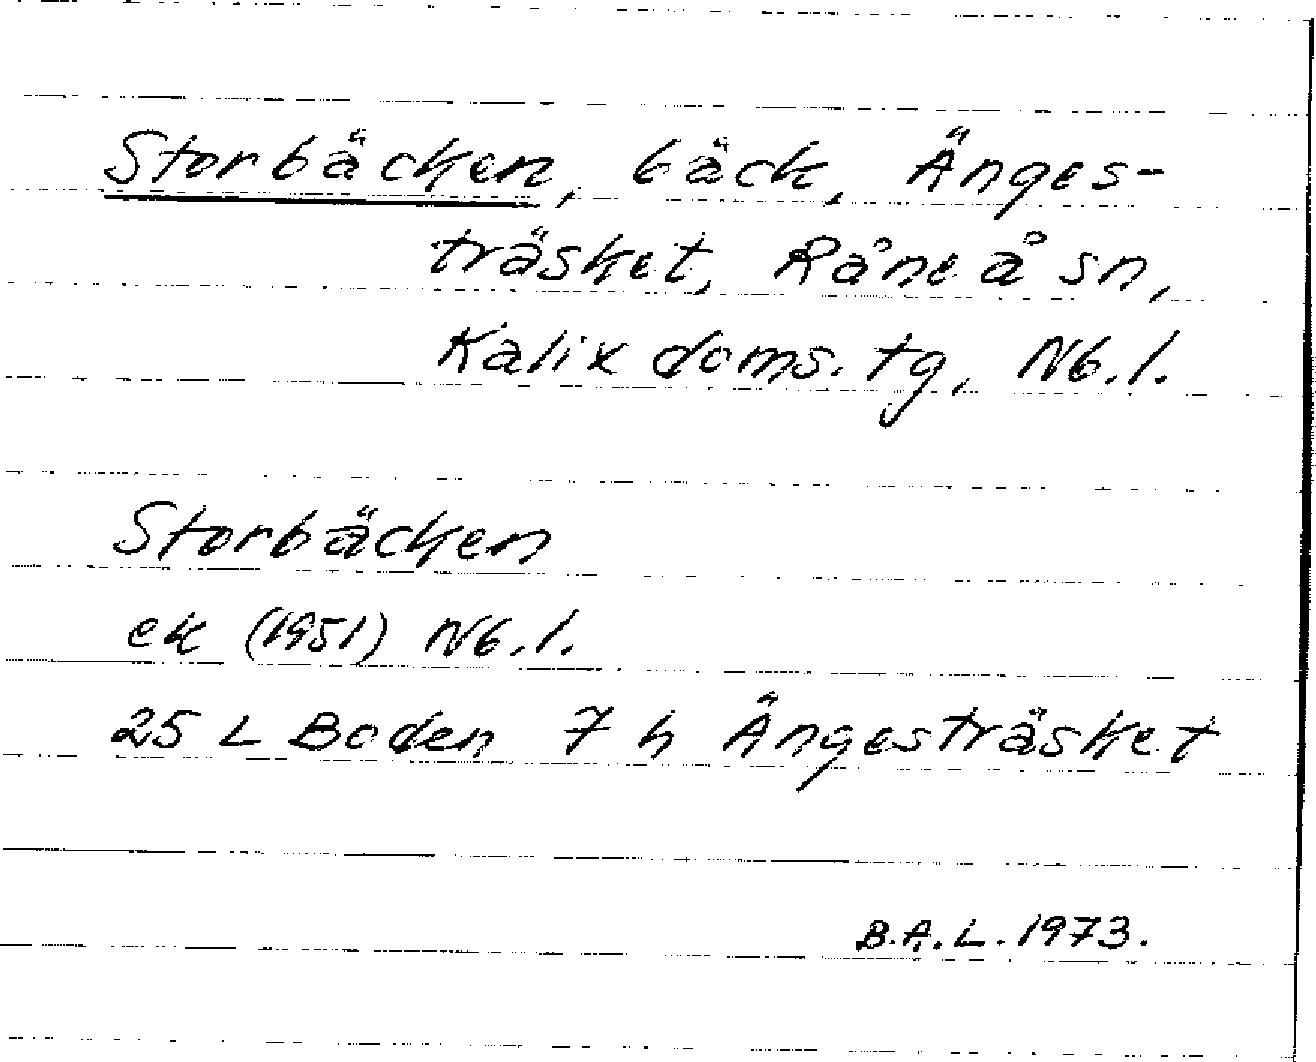 Storbäcken, bäck, Änges-
träsket, Råneå sn,
Kalix doms. tg, Nb.l.
Storbäcken
ek (1951) Nb.l.
25 L Boden 7 h Ängesträsket
B.A.L. 1973.